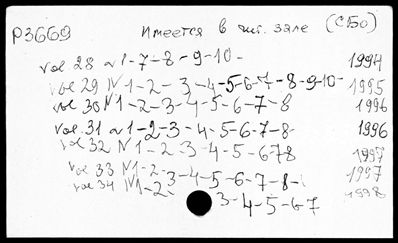 P3669 Имеется в чит. зале (СБо)
vol 28 N1-7-8-9-10- 1994
vol 29 N1-2-3-4-5-6-7-8-9-10- 1995
vol 30 N1-2-3-4-5-6-7-8 1996
vol. 31 N1-2-3-4-5-6-7-8- 1996
vol 32 N1-2-3-4-5-678 1997
vol 33 N1-2-3-4-5-6-7-8- 1997
vol 34 N1-2- 3-4-5-6-7 1998